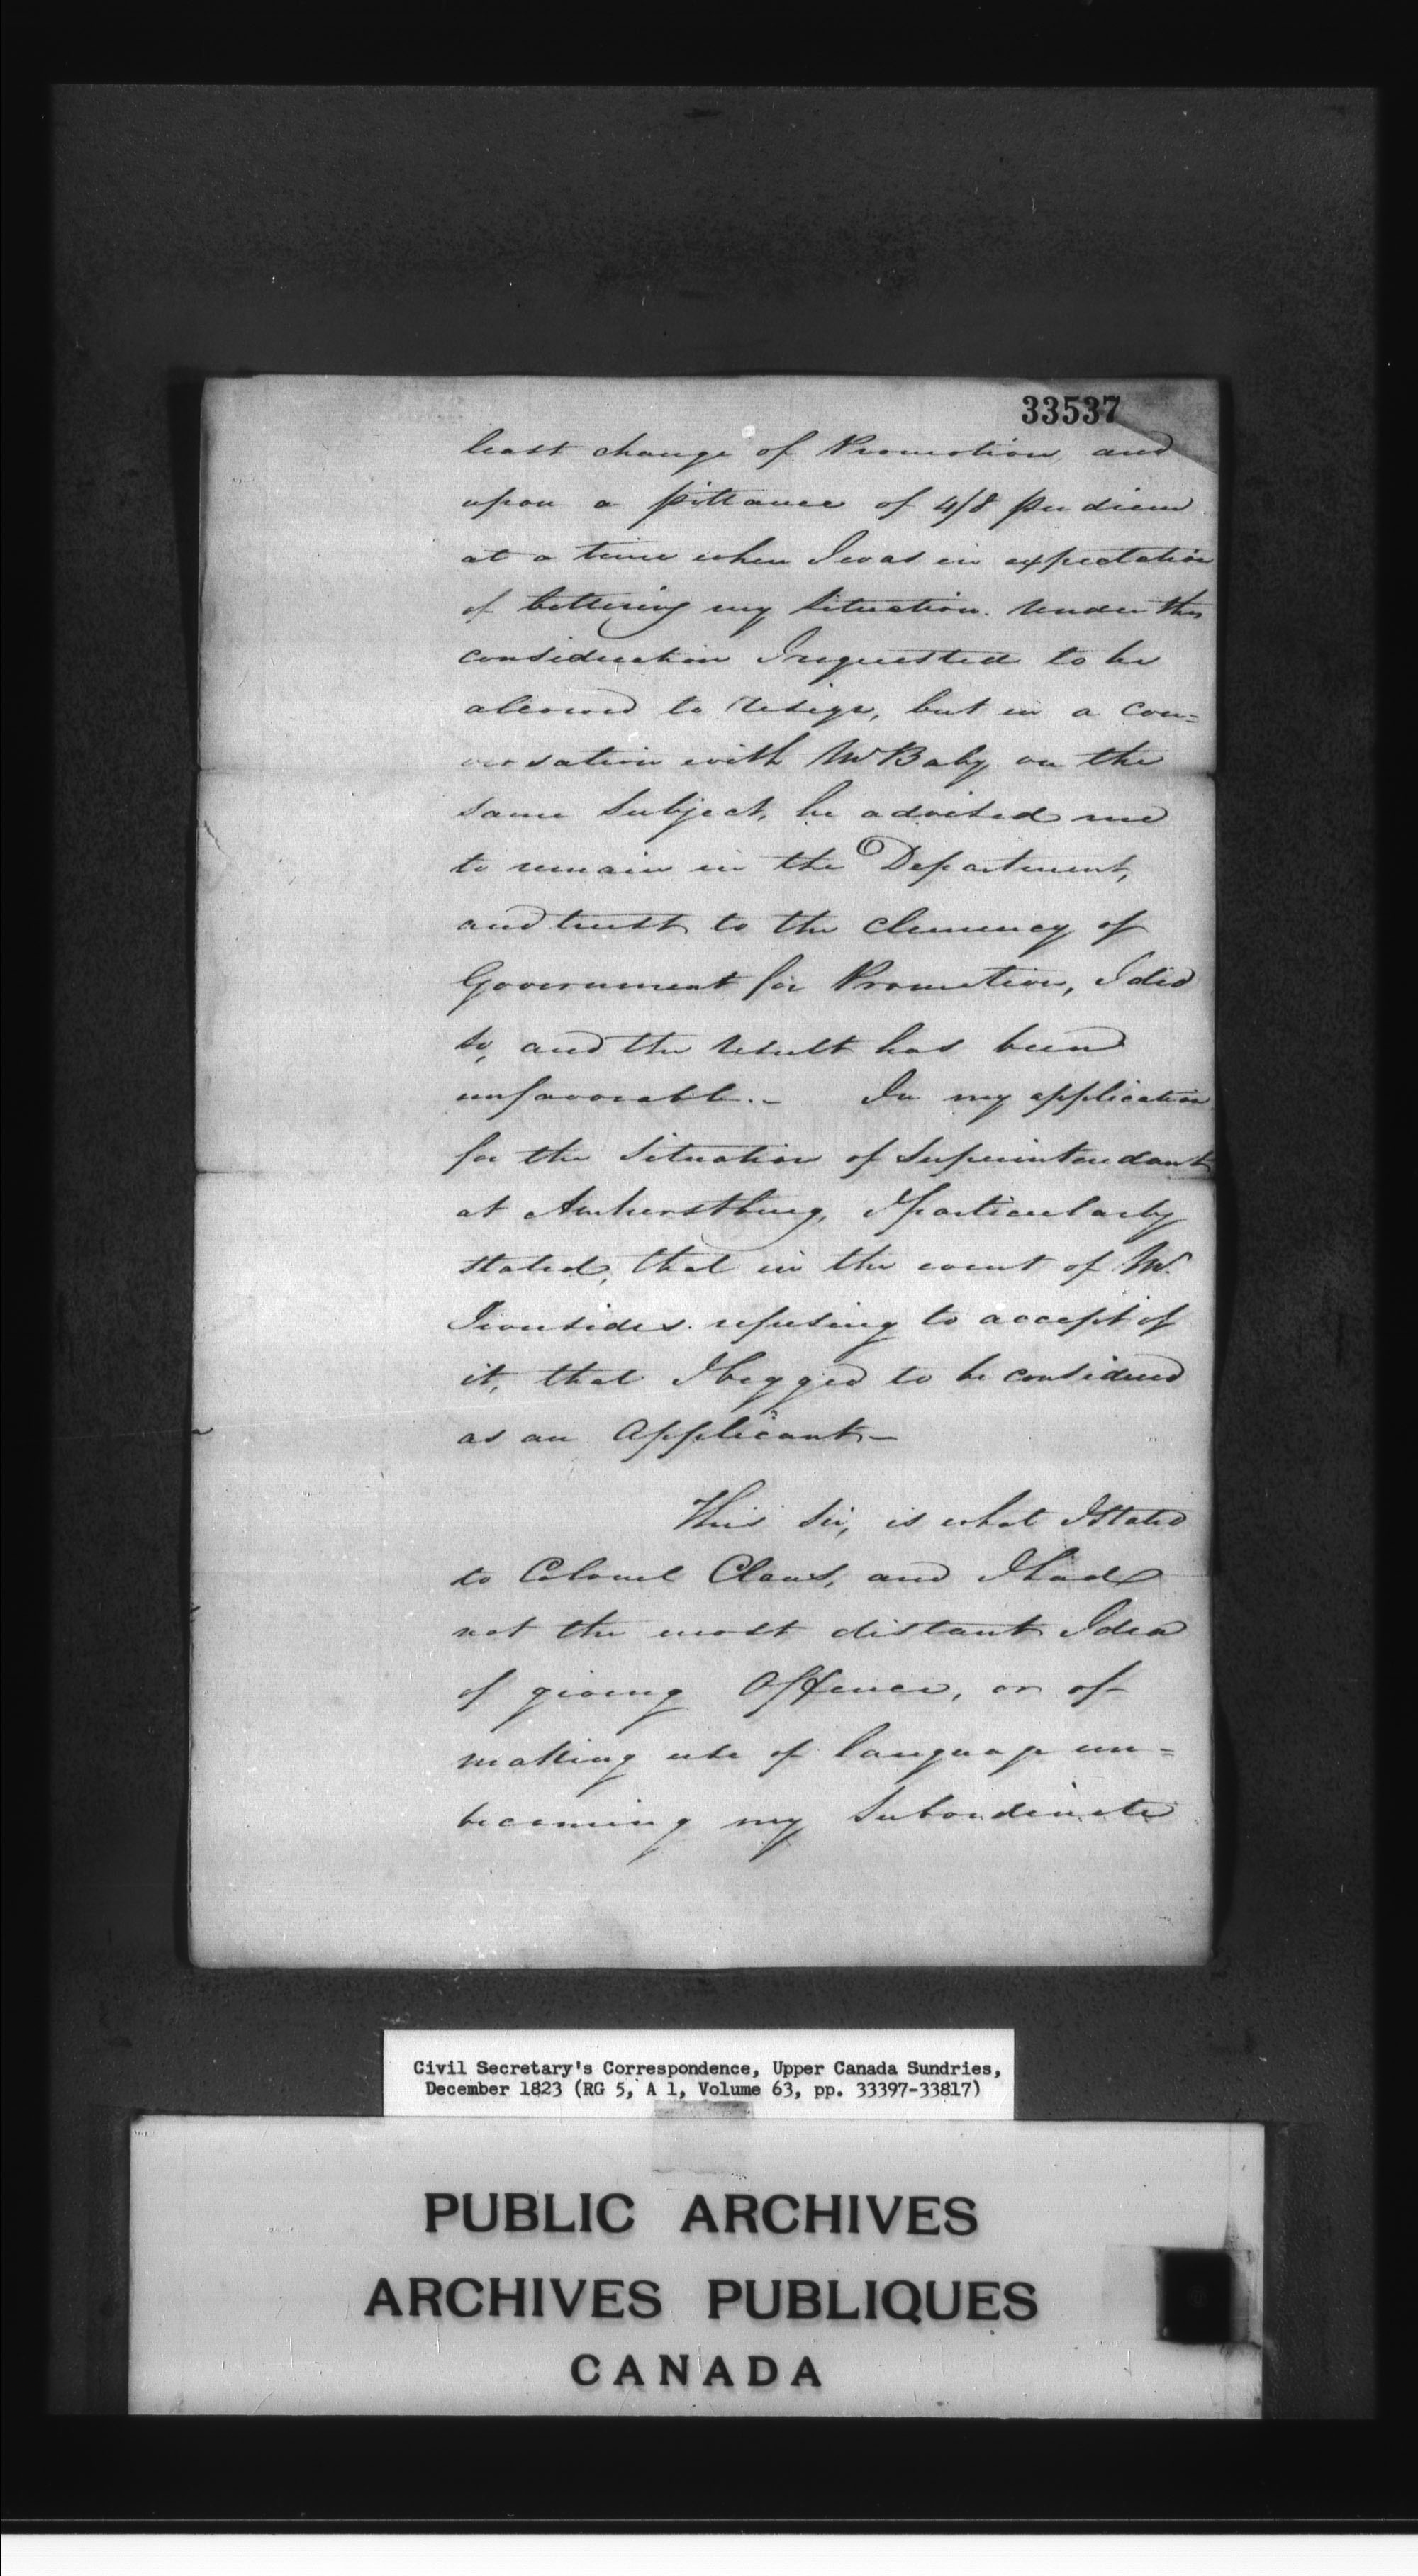 33537
least change of Promotion, and
upon a pittance of 4/8 per diem
at a time when I was in expectation
of bettering my situation. Under this
consideration I requested to be
allowed to resign, but in a con=
versation with Mr Baby on the
same subject, he advised me
to remain in the Department,
and trust to the clemency of
Government for Promotion, I did
so, and the result has been
unfavorable.- In my application
for the situation of Superintendant
at Amherstburg, I particularly
stated, that in the event of Mr.
Ironsides refusing to accept of
it, that I begged to be considered
as an Applicant-
This Sir, is what I stated
to Colonel Claus, and I had
not the most distant Idea
of giving Offence, or of
making use of language un=
becoming my Subordinate
Civil Secretary's Correspondence, Upper Canada Sundries,
December 1823 (RG 5, A 1, Volume 63, pp. 33397-33817)
PUBLIC ARCHIVES
ARCHIVES PUBLIQUES
CANADA